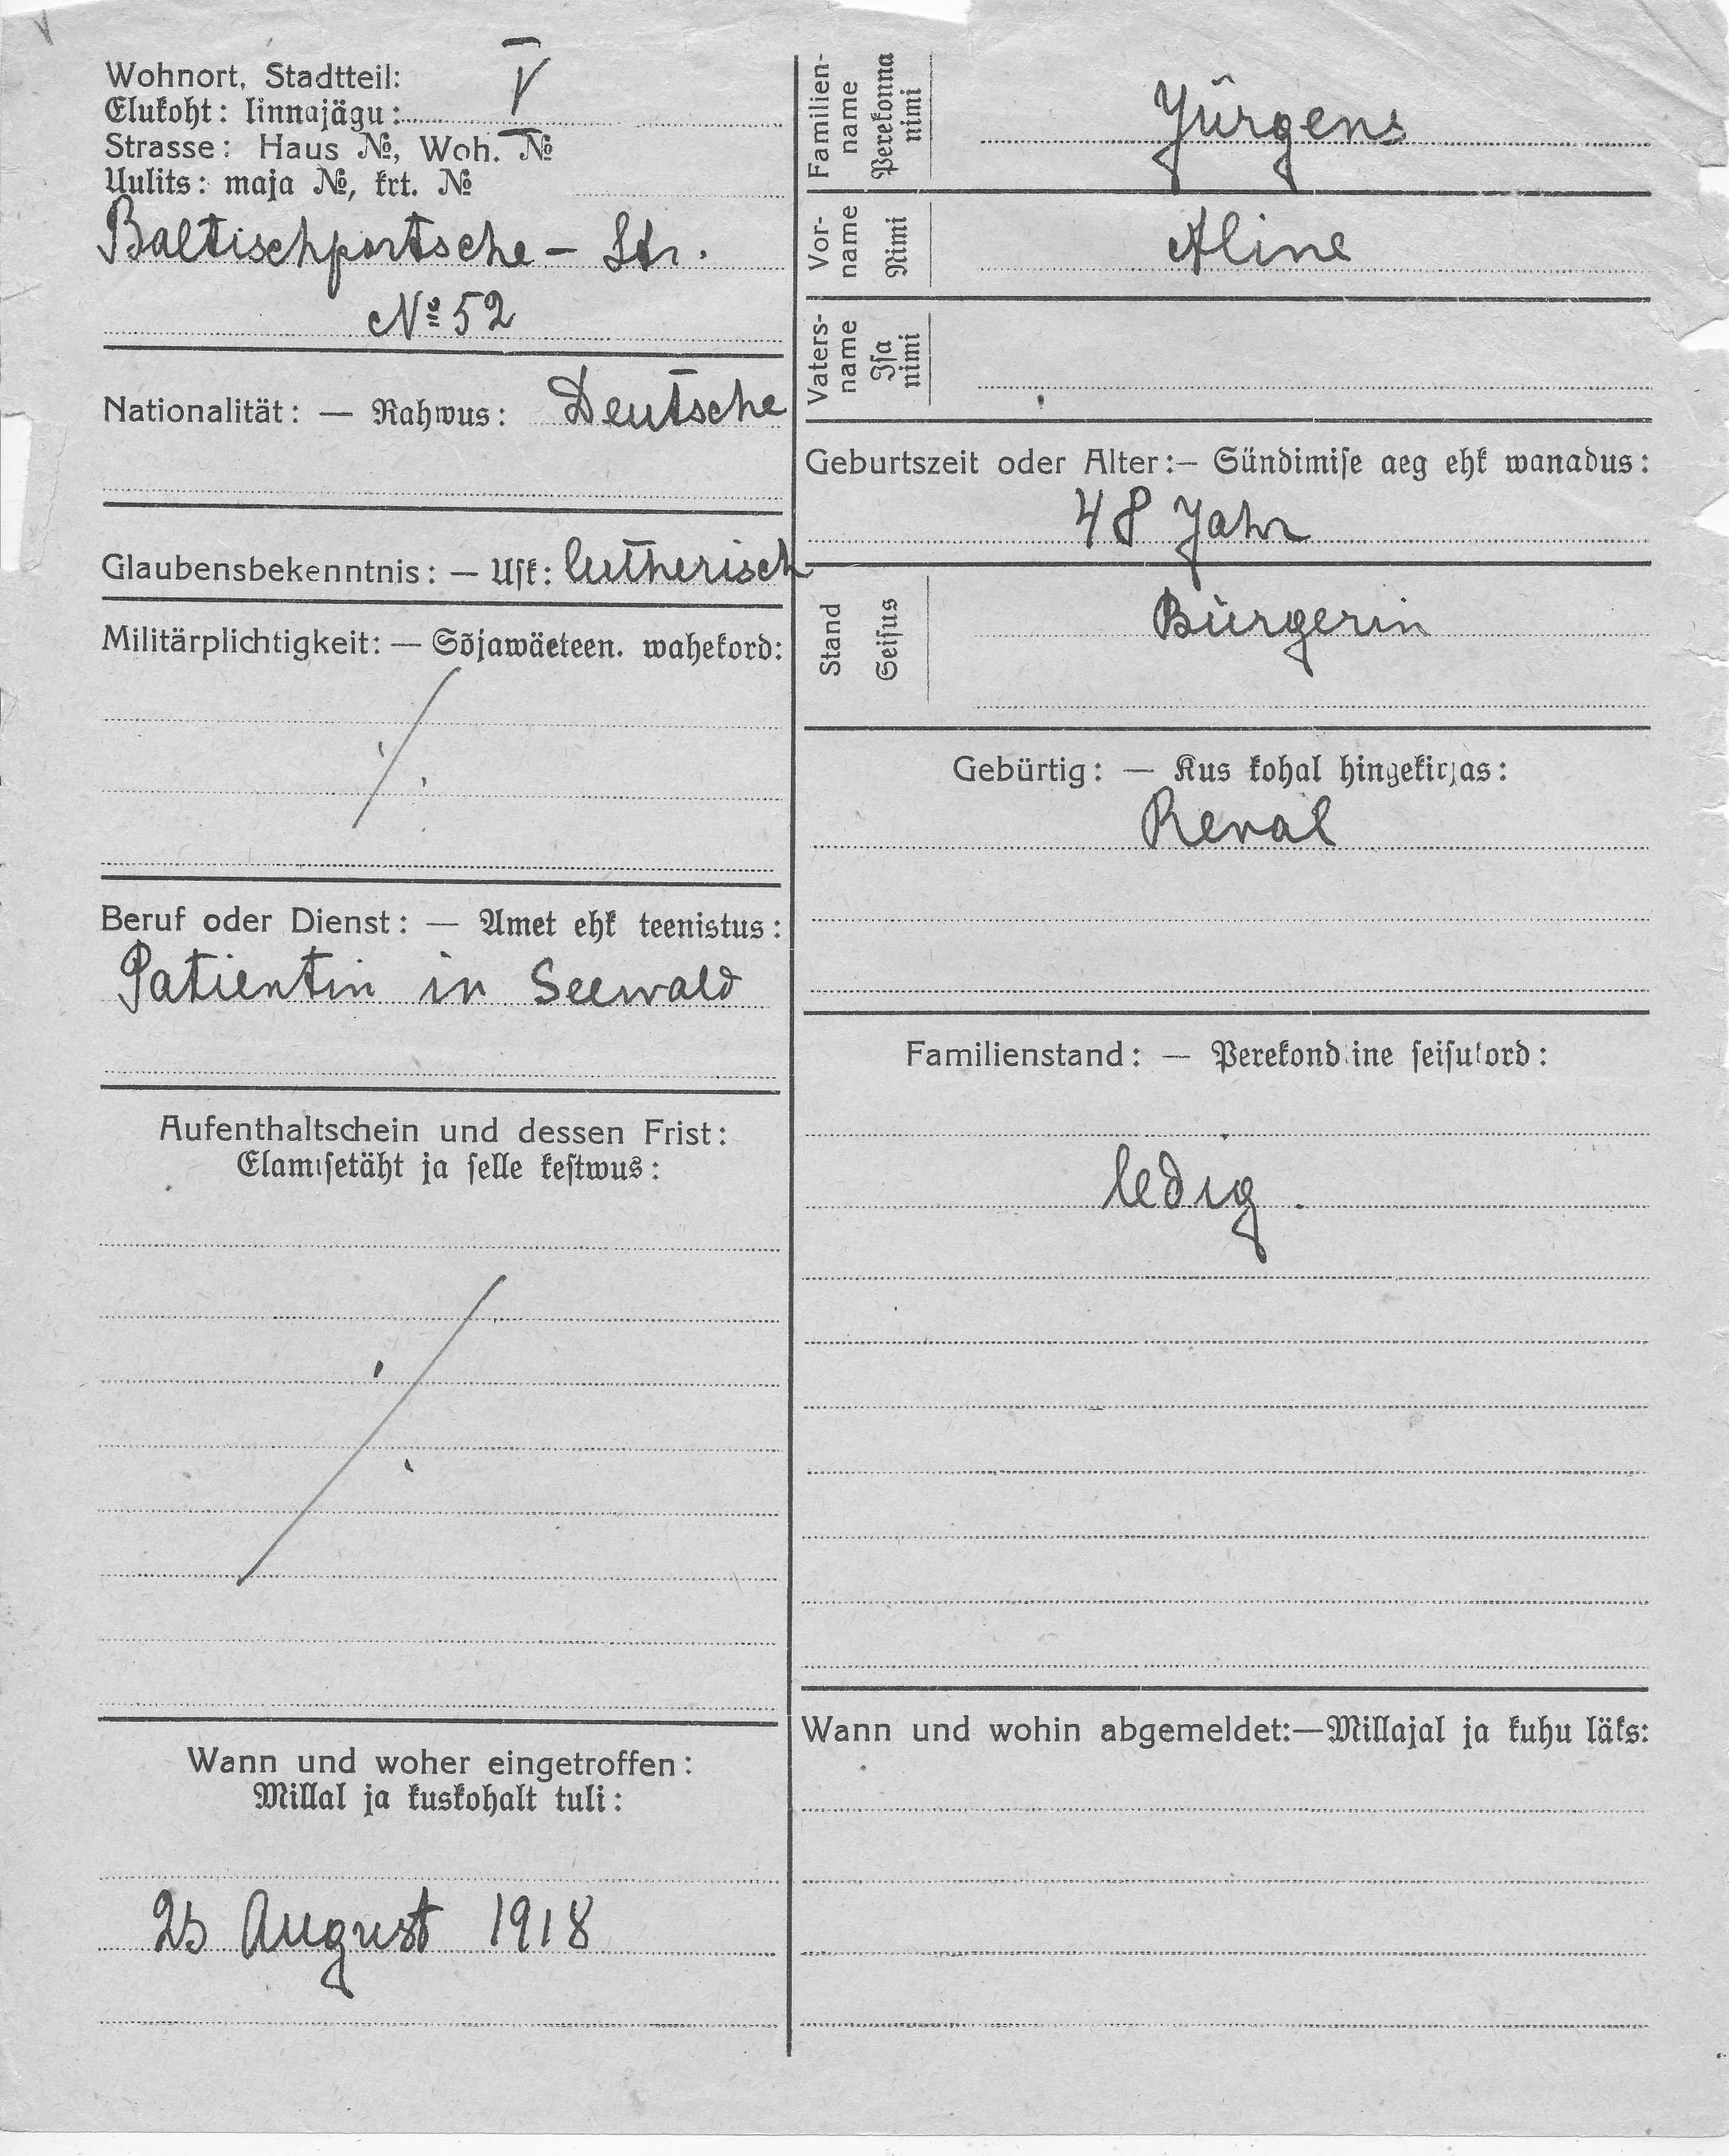 Wohnort, Stadtteil: V
Elukoht: linnajägu:
Strasse: Haus №, Woh. №
Uulits: maja №, krt. №
Baltischportsche - Str.
№ 52
Nationalität: — Rahwus: Deutsche
Glaubensbekenntnis: — Usk: lutherisch
Militärplichtigkeit: — Sõjawäeteen. wahekord:
Beruf oder Dienst: — Amet ehk teenistus:
Patientin in Seewald
Aufenthaltschein und dessen Frist:
Elamisetäht ja selle kestwus:
Wann und woher eingetroffen:
Millal ja kuskohalt tuli:
25 August 1918
Familien-
name
Perekonna
nimi
Jürgens
Vor-
name
Nimi
Aline
Vaters-
name
Isa
nimi
Geburtszeit oder Alter:— Sündimise aeg ehk wanadus:
48 Jahr
Stand
Seisus
Bürgerin
Gebürtig: — Kus kohal hingekirjas:
Reval
Familienstand: — Perekondline seisukord:
ledig.
Wann und wohin abgemeldet:—Millajal ja kuhu läks: